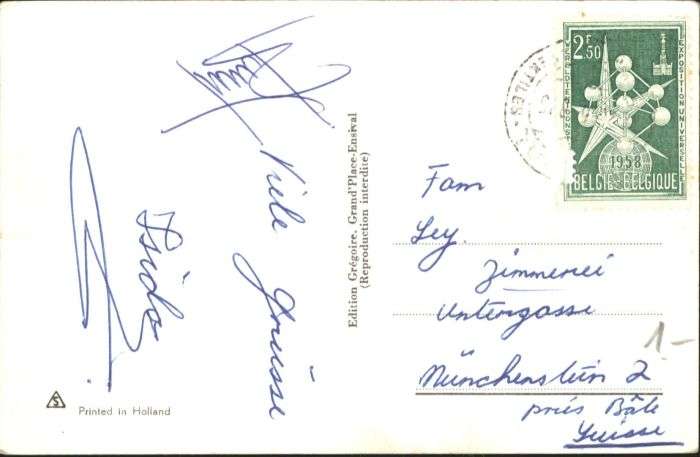 Viele Grüsse
Isido
Edition Grégoire, Grand'Place-Ensival
(Reproduction interdite)
2F50
WERELDTENTOONST.
EXPOSITION UNIVERSELLE
1958
BELGIE-BELGIQUE
Fam
Ley.
Zimmerei
Untergasse
Münchenstein 2
près Bâle
Suisse
1-
S
Printed in Holland